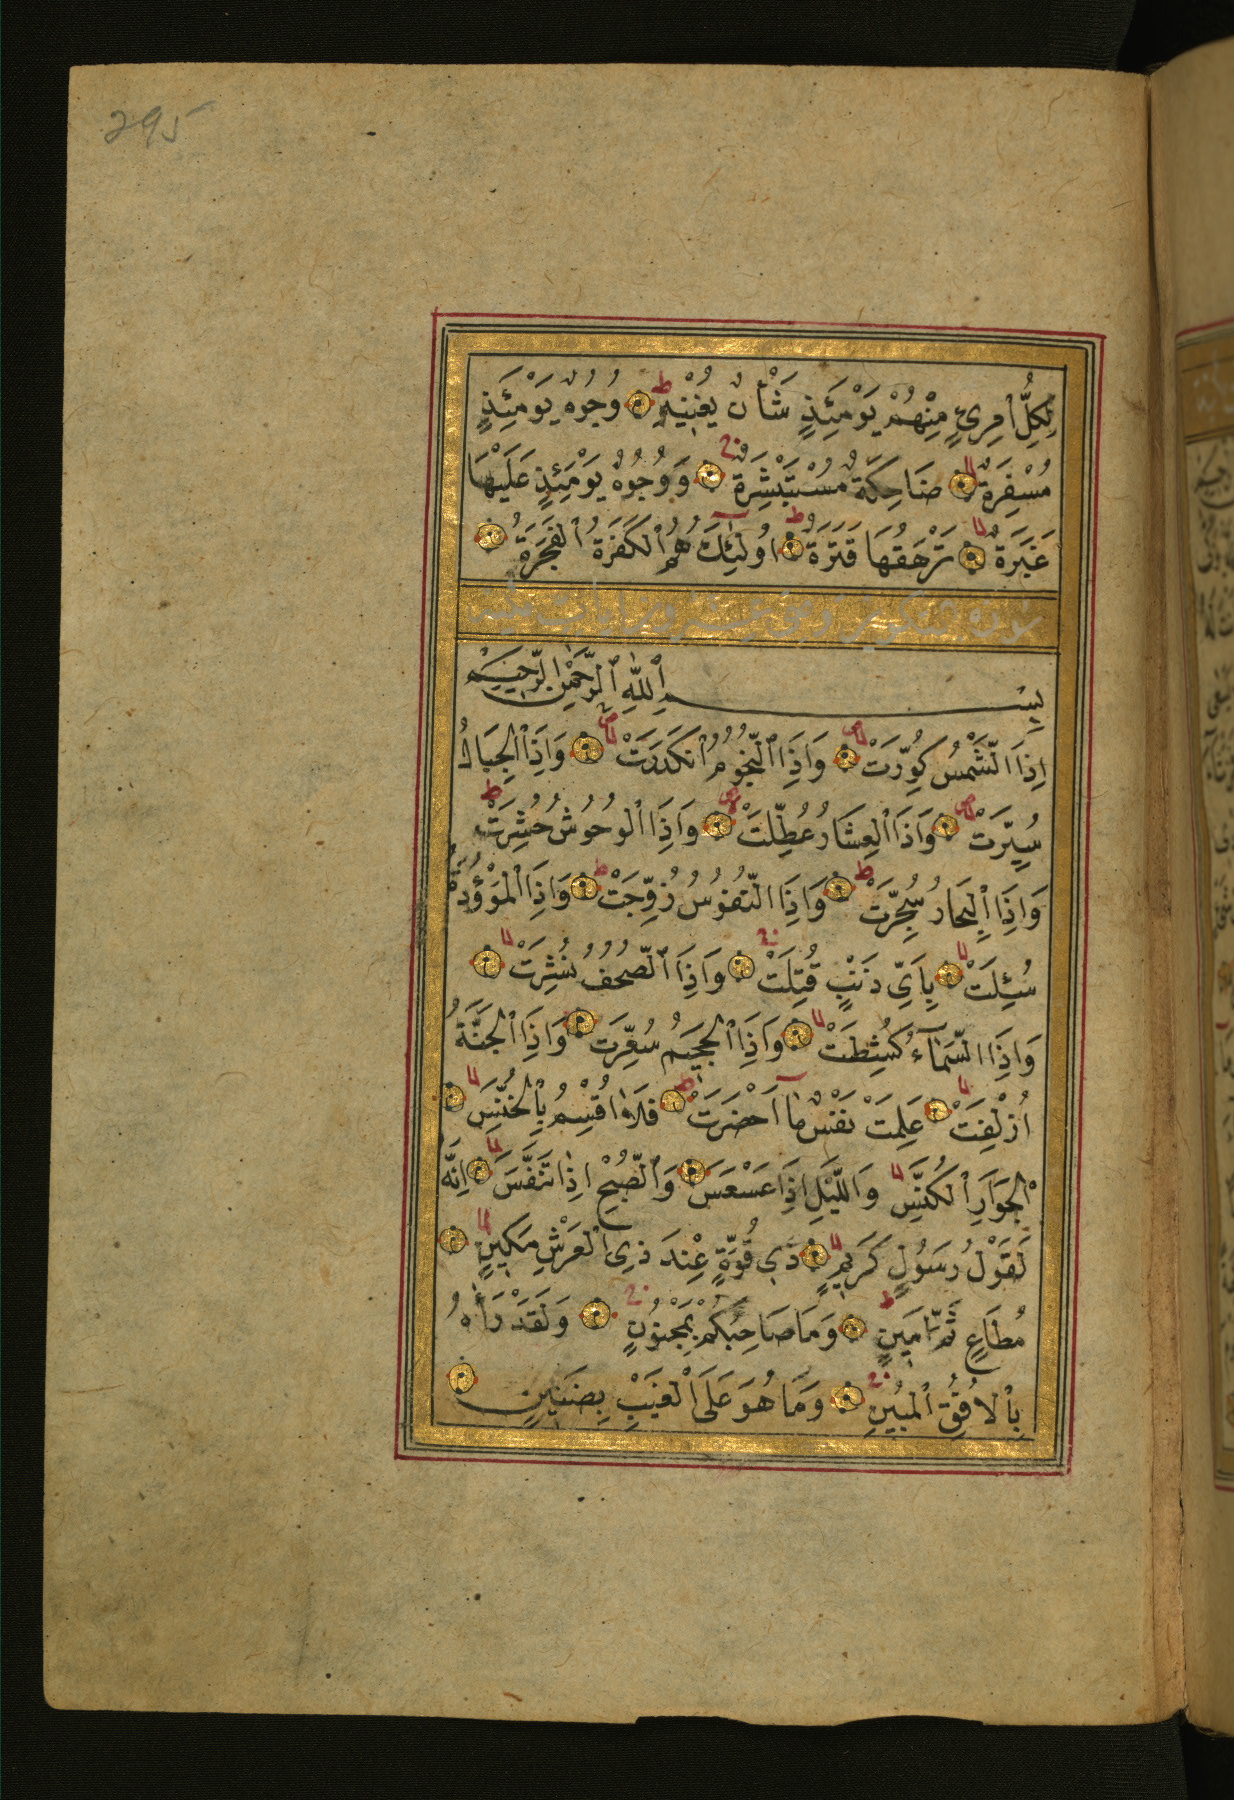 295
لِكُلِّ امْرِئٍ مِنْهُمْ يَوْمَئِذٍ شَأْنٌ يُغْنِيهِ ط وُجُوهٌ يَوْمَئِذٍ
مُسْفِرَةٌ لا ضَاحِكَةٌ مُسْتَبْشِرَةٌ ج وَوُجُوهٌ يَوْمَئِذٍ عَلَيْهَا
غَبَرَةٌ لا تَرْهَقُهَا قَتَرَةٌ ط اُولٰئِكَ هُمُ الْكَفَرَةُ الْفَجَرَةُ
سورة التكوير
بِسْمِ اللّٰهِ الرَّحْمٰنِ الرَّحِيمِ
اِذَا الشَّمْسُ كُوِّرَتْ وَاِذَا النُّجُومُ انْكَدَرَتْ وَاِذَا الْجِبَالُ
سُيِّرَتْ وَاِذَا الْعِشَارُ عُطِّلَتْ وَاِذَا الْوُحُوشُ حُشِرَتْ ط
وَاِذَا الْبِحَارُ سُجِّرَتْ ط وَاِذَا النُّفُوسُ زُوِّجَتْ ط وَاِذَا الْمَوْؤُدَةُ
سُئِلَتْ لا بِاَيِّ ذَنْبٍ قُتِلَتْ ج وَاِذَا الصُّحُفُ نُشِرَتْ لا
وَاِذَا السَّمَآءُ كُشِطَتْ لا وَاِذَا الْجَحِيمُ سُعِّرَتْ وَاِذَا الْجَنَّةُ
اُزْلِفَتْ لا عَلِمَتْ نَفْسٌ مَا اَحْضَرَتْ ط فَلَا اُقْسِمُ بِالْخُنَّسِ لا
الْجَوَارِ الْكُنَّسِ لا وَاللَّيْلِ اِذَا عَسْعَسَ وَالصُّبْحِ اِذَا تَنَفَّسَ لا اِنَّهُ
لَقَوْلُ رَسُولٍ كَرِيمٍ لا ذِي قُوَّةٍ عِنْدَ ذِي الْعَرْشِ مَكِينٍ لا
مُطَاعٍ ثَمَّ اَمِينٍ ط وَمَا صَاحِبُكُمْ بِمَجْنُونٍ ج وَلَقَدْ رَاٰهُ
بِالْاُفُقِ الْمُبِينِ ج وَمَا هُوَ عَلَى الْغَيْبِ بِضَنِينٍ